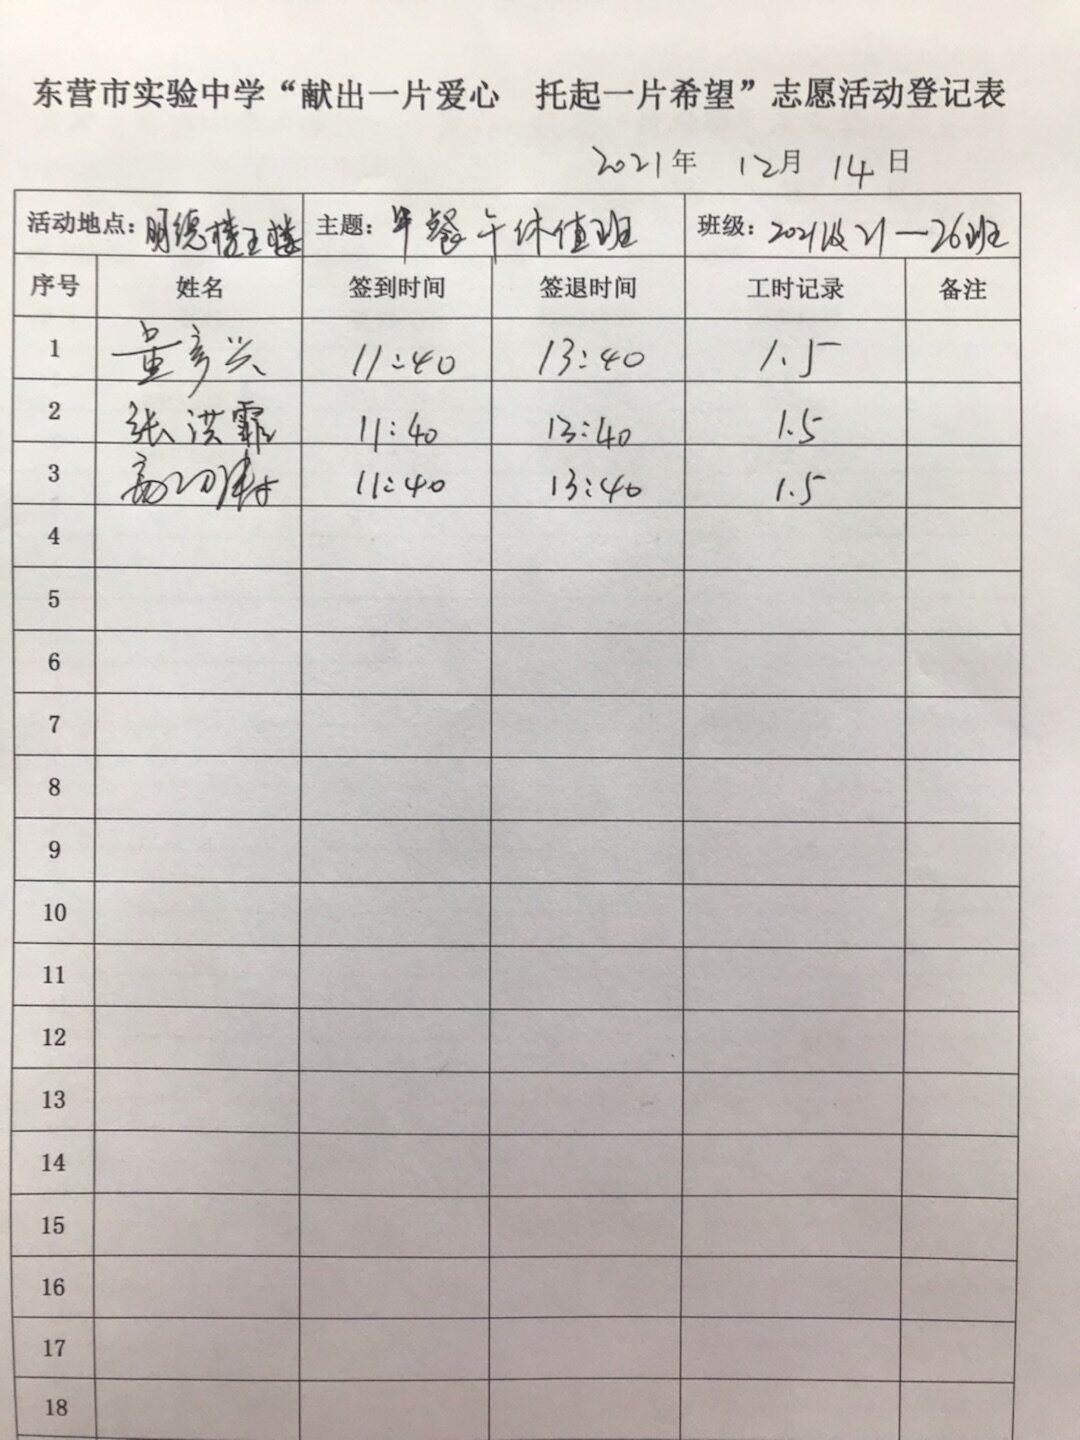 东营市实验中学“献出一片爱心 托起一片希望”志愿活动登记表
2021年 12月 14日
活动地点：明德楼五楼 主题：午餐午休值班 班级：2021级21—26班
序号 姓名 签到时间 签退时间 工时记录 备注
1 董彦兴 11:40 13:40 1.5
2 张洪霏 11:40 13:40 1.5
3 11:40 13:40 1.5
4
5
6
7
8
9
10
11
12
13
14
15
16
17
18